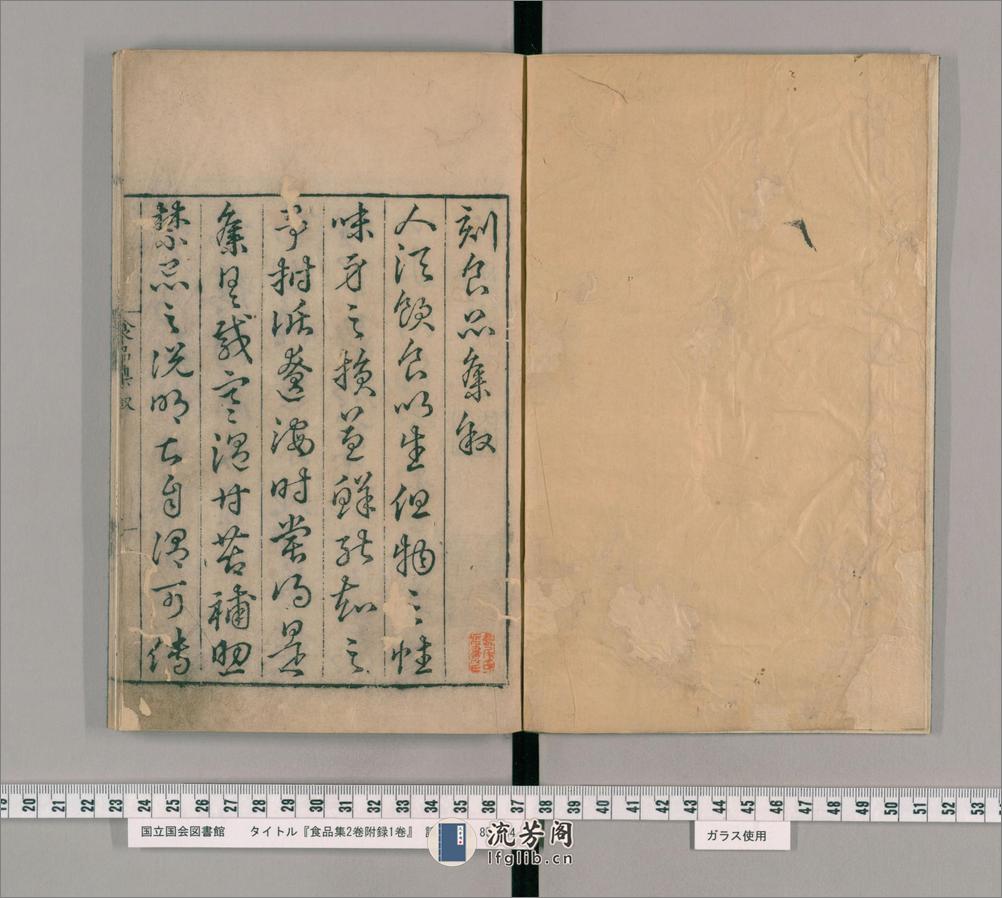 刻食品集叙
人須飲食以生但物之性
味身之損益鮮能知之
予 時嘗得是
集 其載 寒温甘苦補
禁忌之説明古自谓可傳
食品集叙
国立国会図書館 タイトル『食品集2卷附録1卷』
ガラス使用
流芳阁
lfglib.cn
19 20 21 22 23 24 25 26 27 28 29 30 31 32 33 34 35 36 37 38 39 40 41 42 43 44 45 46 47 48 49 50 51 52 53